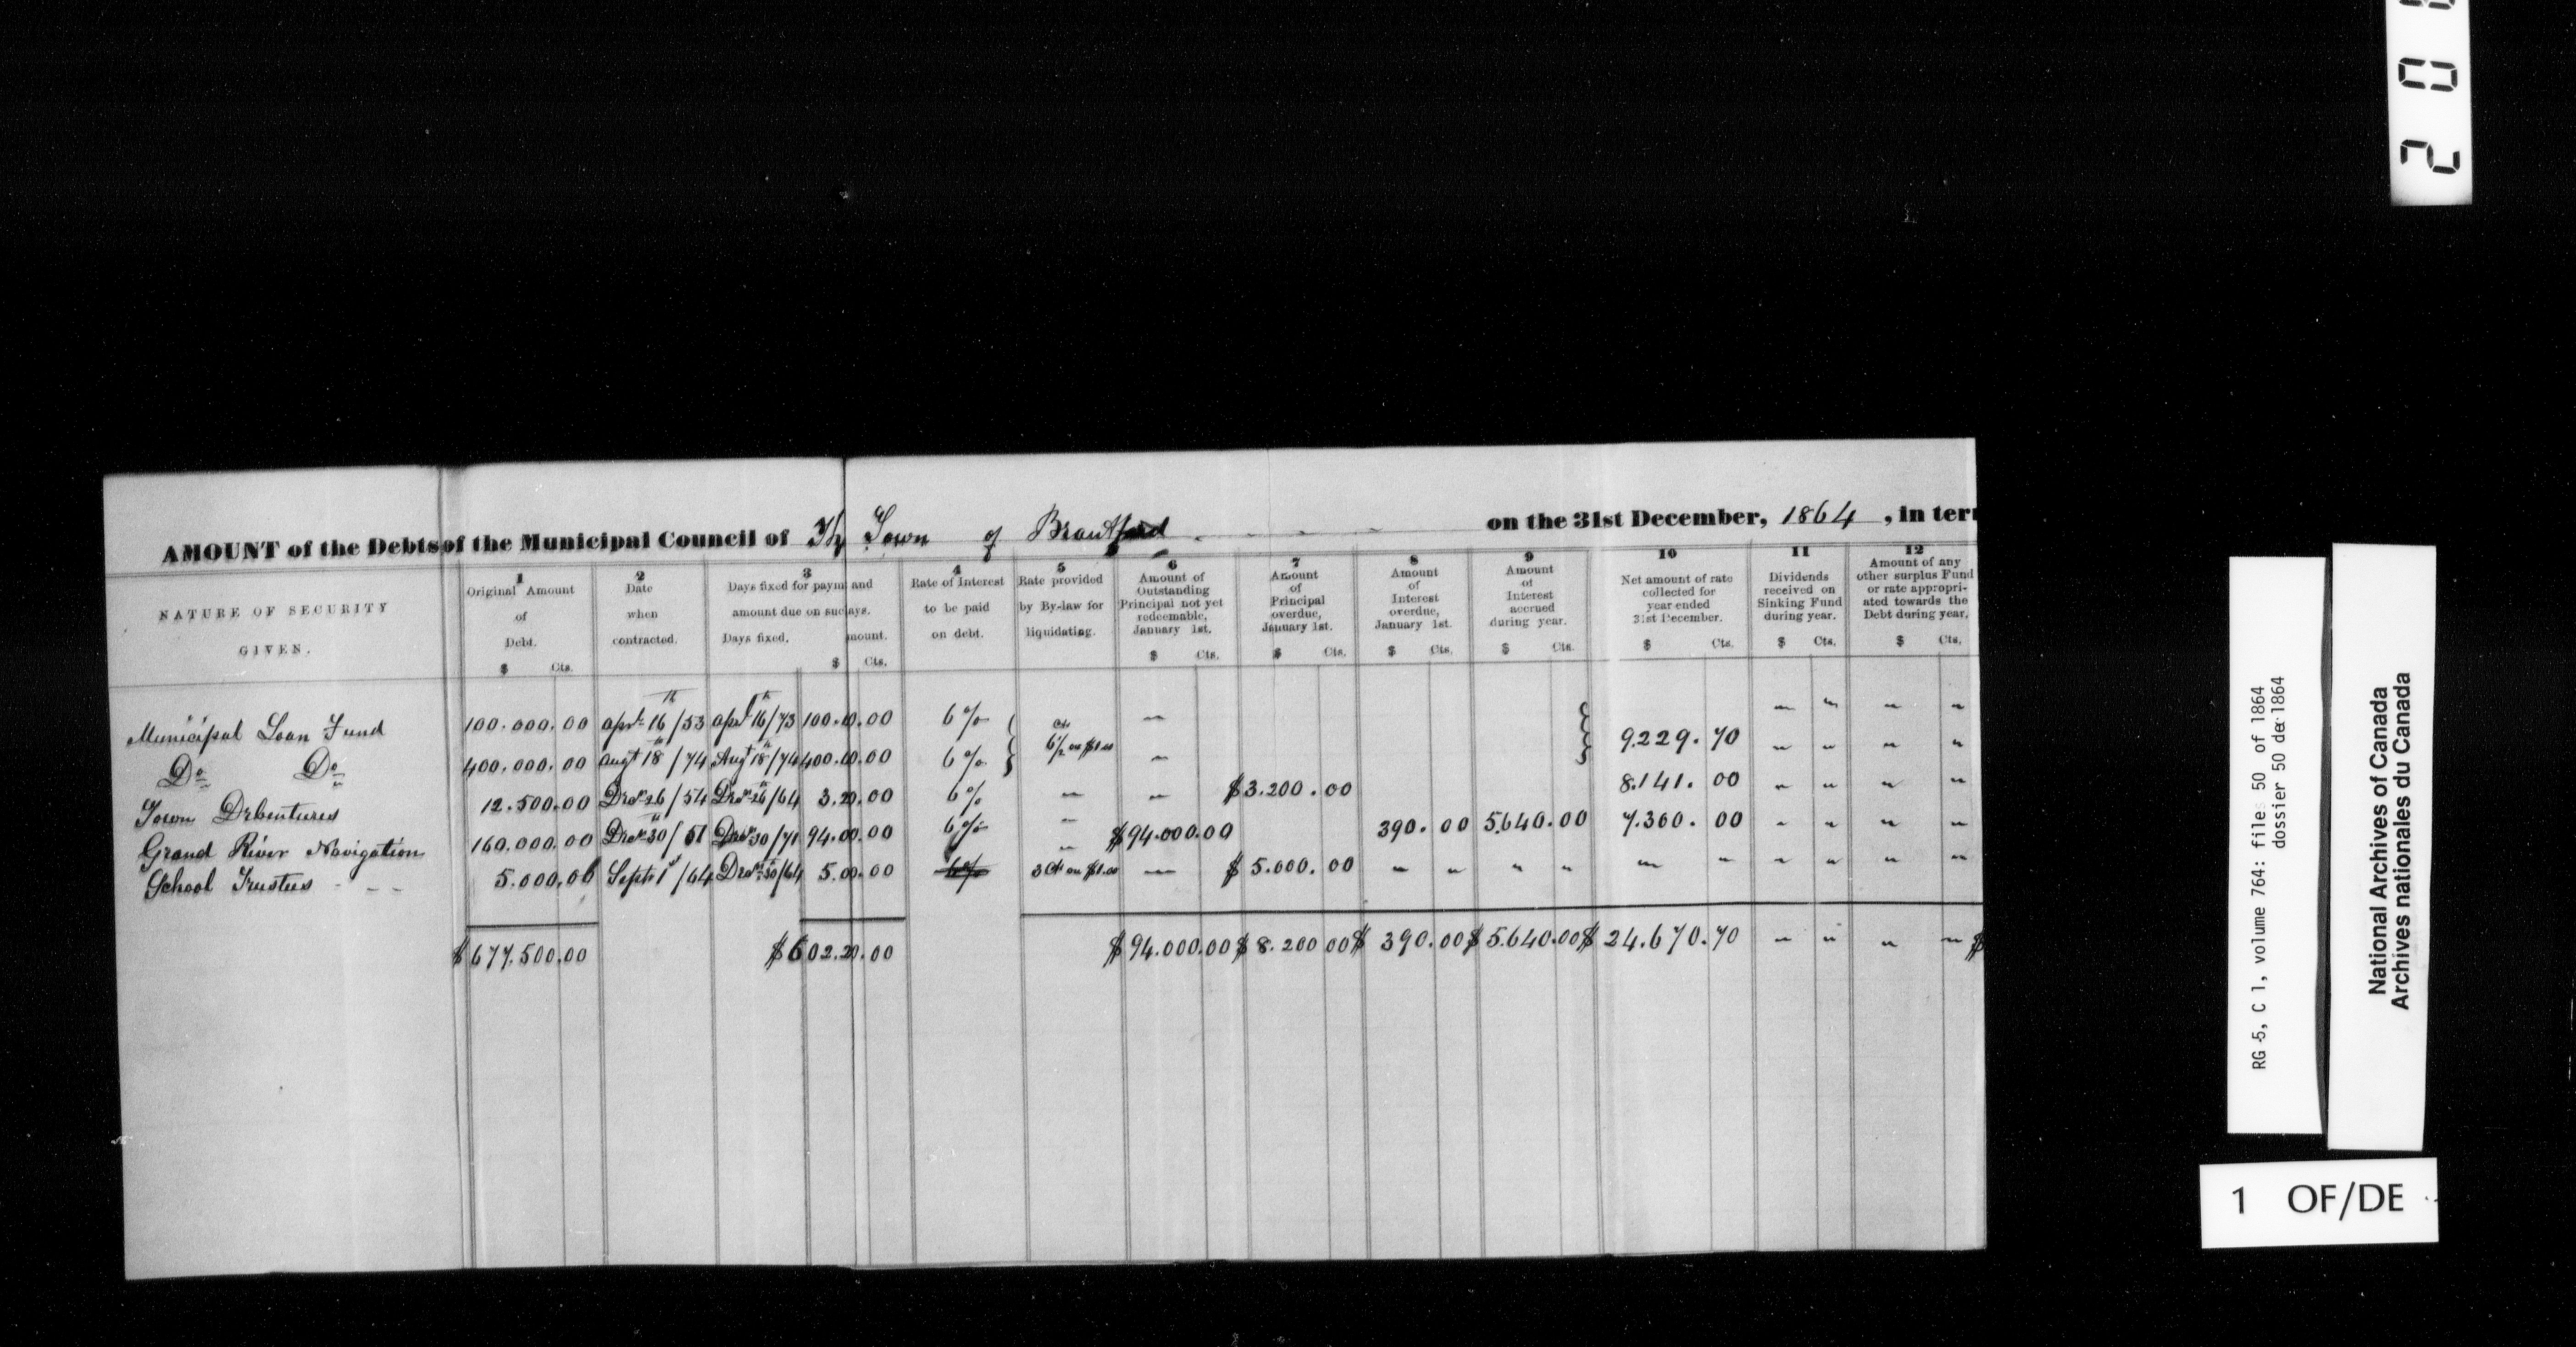 AMOUNT of the Debts of the Municipal Council of The Town of Brantford on the 31st December, 1864, in ter
NATURE OF SECURITY GIVEN.
1 Original Amount of Debt. $ Cts.
2 Date when contracted.
3 Days fixed for paym and amount due on suc ays. Days fixed. mount. $ Cts.
4 Rate of Interest to be paid on debt.
5 Rate provided by By-law for liquidating.
6 Amount of Outstanding Principal not yet redeemable, January 1st. $ Cts.
7 Amount of Principal overdue, January 1st. $ Cts.
8 Amount of Interest overdue, January 1st. $ Cts.
9 Amount of Interest accrued during year. $ Cts.
10 Net amount of rate collected for year ended 31st December. $ Cts.
11 Dividends received on Sinking Fund during year. $ Cts.
12 Amount of any other surplus Fund or rate appropriated towards the Debt during year. $ Cts.
Municipal Loan Fund 100.000.00 Apr 16th/53 Apl 16th/73 100.00.00 6% — " " " "
Do Do 400.000.00 Augt 18th/74 Augt 18th/74 400.00.00 6% 6½ on $1.00 — 9.229.70 " " " "
Town Debentures 12.500.00 Decr 26/54 Decr 26/64 3.20.00 6% — — $3.200.00 8.141.00 " " " "
Grand River Navigation 160.000.00 Decr 30/51 Decr 30/71 94.00.00 6% — $94.000.00 390.00 5.640.00 7.300.00 " " " "
School Trustees - - - 5.000.00 Septr 1st/64 Decr 30/64 5.00.00 6% 3 Cts on $1.00 — $5.000.00 " " " " " " " " " "
$677.500.00 $602.20.00 $94.000.00 $8.200.00 $390.00 $5.640.00 $24.670.70 " " " " $
2 0
RG 5, C 1, volume 764: file 50 of 1864
dossier 50 de 1864
National Archives of Canada
Archives nationales du Canada
1 OF/DE